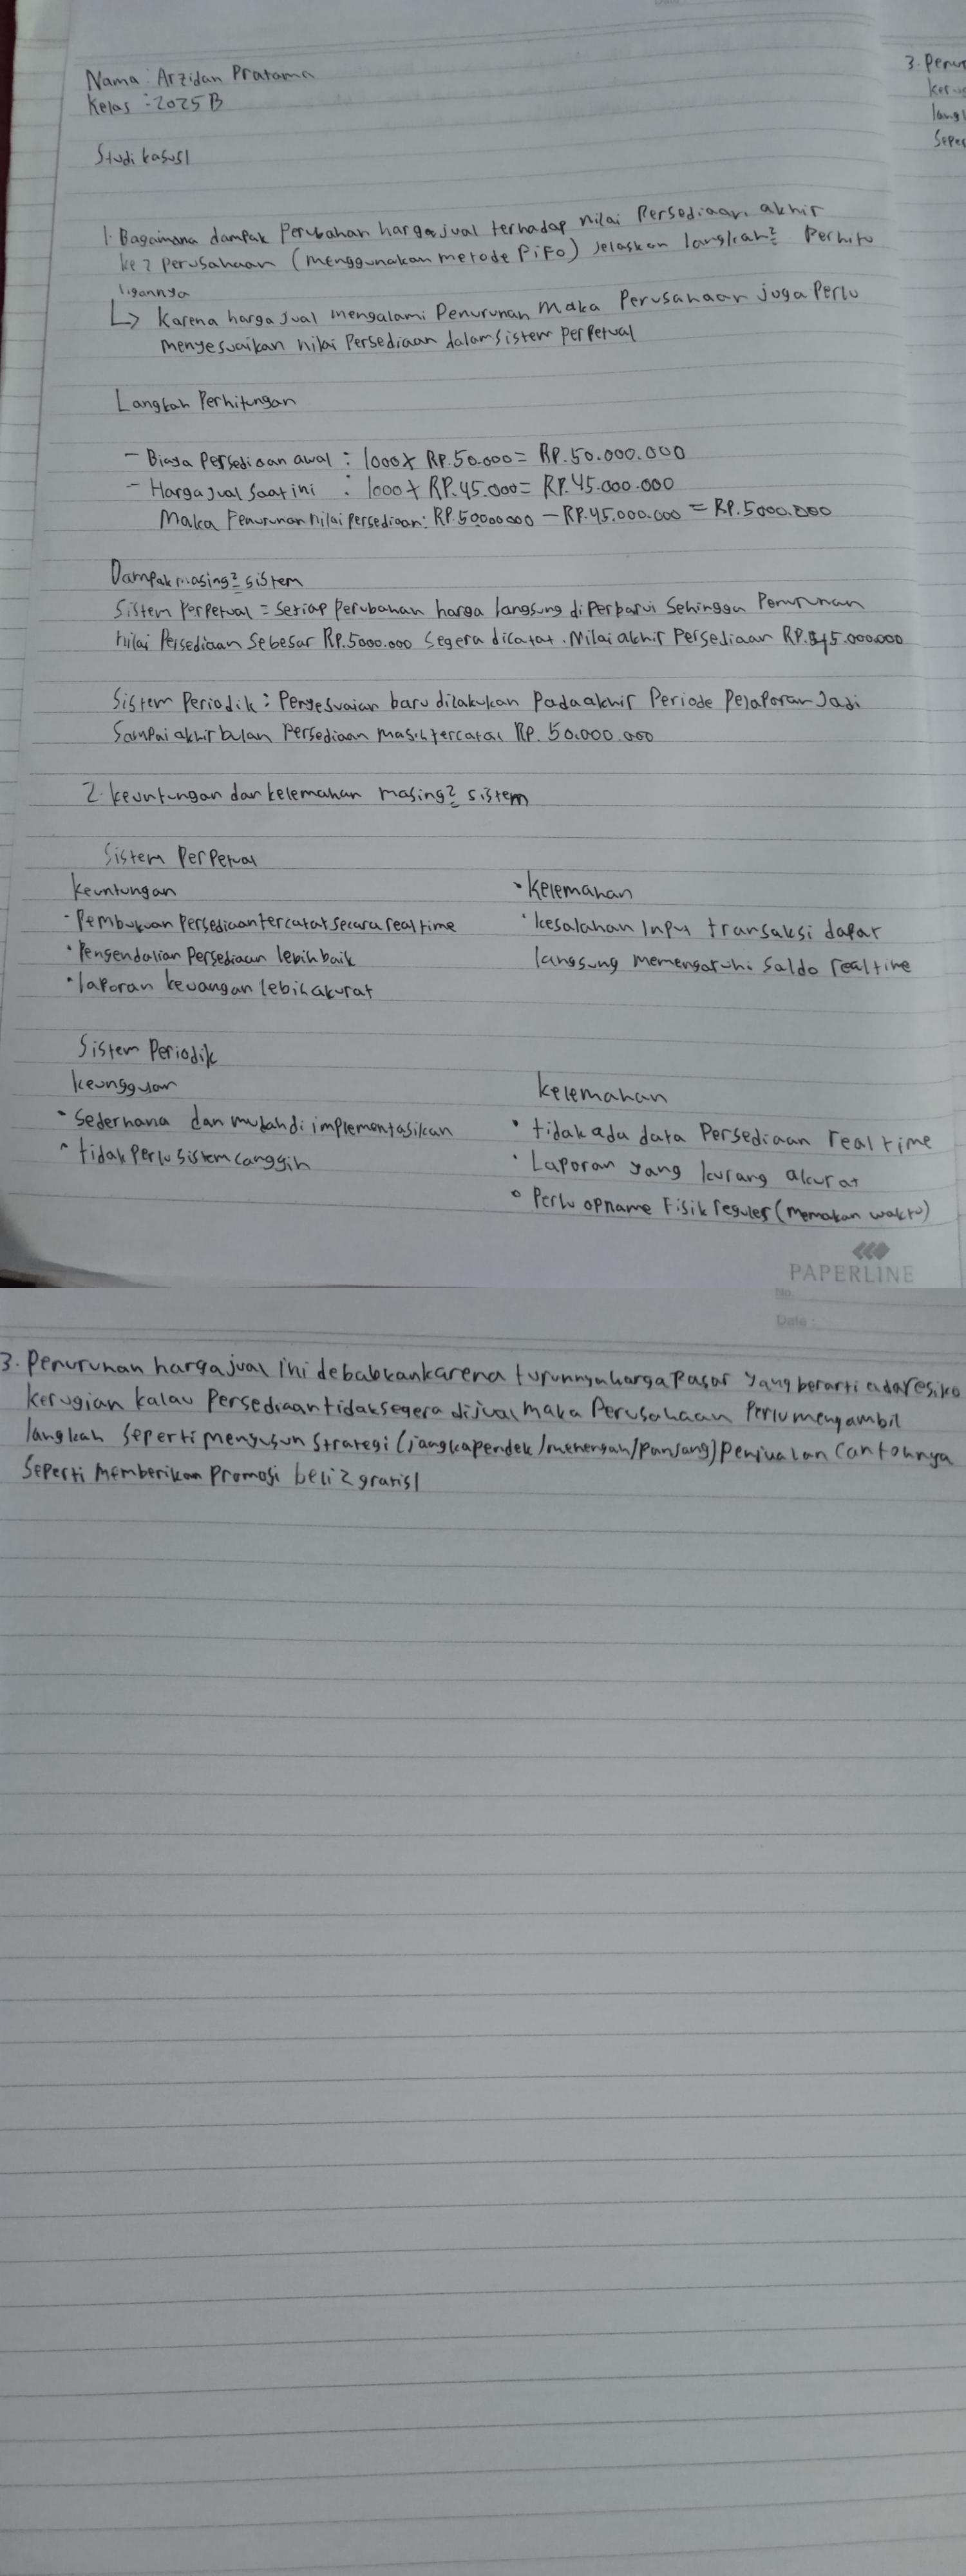 Nama : Arzidan Pratama
Kelas : 2025 B
Studi kasus 1
1. Bagaimana dampak Perubahan harga jual terhadap nilai Persediaan akhir
ke 2 perusahaan (menggunakan metode FiFo) Jelaskan langkah² Perhitu
ngannya
↳ Karena harga jual mengalami Penurunan Maka Perusahaan juga Perlu
menyesuaikan nilai Persediaan dalam sistem perpetual
Langkah Perhitungan
- Biaya Persediaan awal : 1000 x RP. 50.000 = RP. 50.000.000
- Harga jual saat ini : 1000 x RP. 45.000 = RP. 45.000.000
Maka Penurunan nilai persediaan : RP. 50000000 - RP. 45.000.000 = RP. 5000.000
Dampak masing² sistem
Sistem Perpetual = setiap perubahan harga langsung diperbarui Sehingga Penurunan
nilai Persediaan Sebesar RP. 5000.000 segera dicatat. Nilai akhir Persediaan RP. 45.000.000
Sistem Periodik : Penyesuaian baru dilakukan Pada akhir Periode Pelaporan Jadi
Sampai akhir bulan Persediaan masih tercatat RP. 50.000.000
2. keuntungan dan kelemahan masing² sistem
Sistem Perpetual
keuntungan
- Pembukuan Persediaan tercatat secara real time
• Pengendalian Persediaan lebih baik
• laporan keuangan lebih akurat
• Kelemahan
• kesalahan Input transaksi dapat
langsung memengaruhi saldo realtime
Sistem Periodik
keunggulan
• Sederhana dan mudah di implementasikan
• tidak Perlu sistem canggih
kelemahan
• tidak ada data Persediaan real time
• Laporan yang kurang akurat
• Perlu opname Fisik reguler (memakan waktu)
PAPERLINE
No
Date :
3. Penurunan harga jual ini debabkan karena turunnya harga Pasar yang berarti ada resiko
kerugian kalau Persediaan tidak segera dijual maka Perusahaan Perlu mengambil
langkah seperti menyusun strategi (jangka pendek/menengah/panjang) penjualan contohnya
Seperti memberikan Promosi beli 2 gratis 1